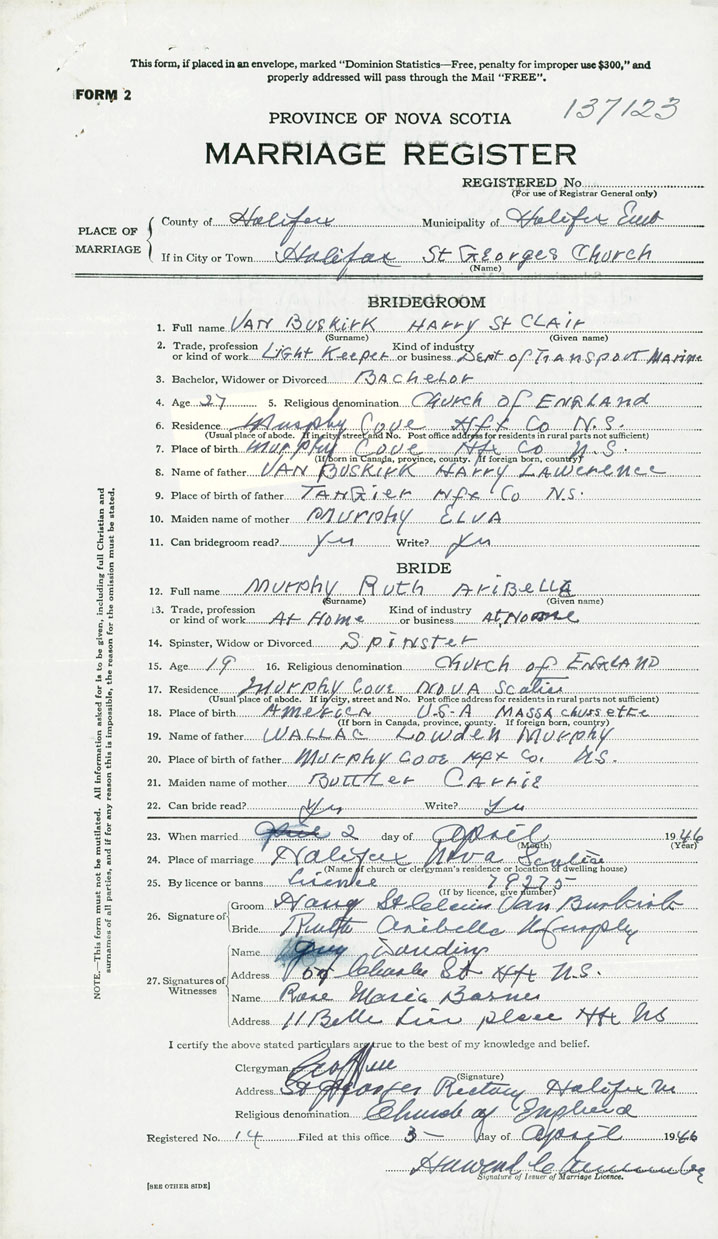 This form, if placed in an envelope, marked "Dominion Statistics—Free, penalty for improper use $300," and
properly addressed will pass through the Mail "FREE".
FORM 2
137123
PROVINCE OF NOVA SCOTIA
MARRIAGE REGISTER
REGISTERED No.
(For use of Registrar General only)
PLACE OF MARRIAGE
County of Halifax Municipality of Halifax
If in City or Town Halifax St Georges Church
(Name)
BRIDEGROOM
1. Full name VAN BUSKIRK HARRY ST CLAIR
(Surname) (Given name)
2. Trade, profession or kind of work Light Keeper Kind of industry or business Dept of Transport Marine
3. Bachelor, Widower or Divorced BACHELOR
4. Age 27 5. Religious denomination CHURCH OF ENGLAND
6. Residence Murphy Cove Hfx Co N.S.
(Usual place of abode. If in city, street and No. Post office address for residents in rural parts not sufficient)
7. Place of birth Murphy Cove Hfx Co N.S.
(If born in Canada, province, county. If foreign born, country)
8. Name of father VAN BUSKIRK HARRY LAWERENCE
9. Place of birth of father TANGIER Hfx Co N.S.
10. Maiden name of mother MURPHY ELVA
11. Can bridegroom read? Yes Write? Yes
BRIDE
12. Full name Murphy Ruth AriBella
(Surname) (Given name)
13. Trade, profession or kind of work At Home Kind of industry or business At Home
14. Spinster, Widow or Divorced Spinster
15. Age 19 16. Religious denomination Church of ENGLAND
17. Residence Murphy Cove NOVA Scotia
(Usual place of abode. If in city, street and No. Post office address for residents in rural parts not sufficient)
18. Place of birth America U-S-A MASSAchusette
(If born in Canada, province, county. If foreign born, country)
19. Name of father WALLAC Lowden Murphy
20. Place of birth of father Murphy Cove Hfx Co. N.S.
21. Maiden name of mother Buttler Carrie
22. Can bride read? Yes Write? Yes
23. When married 2 day of April 1946
(Month) (Year)
24. Place of marriage Halifax Nova Scotia
(Name of church or clergyman's residence or location of dwelling house)
25. By licence or banns Licence 78275
(If by licence, give number)
26. Signature of
Groom Harry St Clair Van Buskirk
Bride Ruth Aribella Murphy
27. Signatures of Witnesses
Name Guy
Address Charles St Hfx N.S.
Name Rose Marie
Address 11 Belle place Hfx NS
I certify the above stated particulars are true to the best of my knowledge and belief.
Clergyman
(Signature)
Address St Georges Rectory Halifax
Religious denomination Church of England
Registered No. 14 Filed at this office 3 – day of April 1946
Signature of Issuer of Marriage Licence.
[SEE OTHER SIDE]
NOTE.—This form must not be mutilated. All information asked for is to be given, including full Christian and
surnames of all parties, and if for any reason this is impossible, the reason for the omission must be stated.